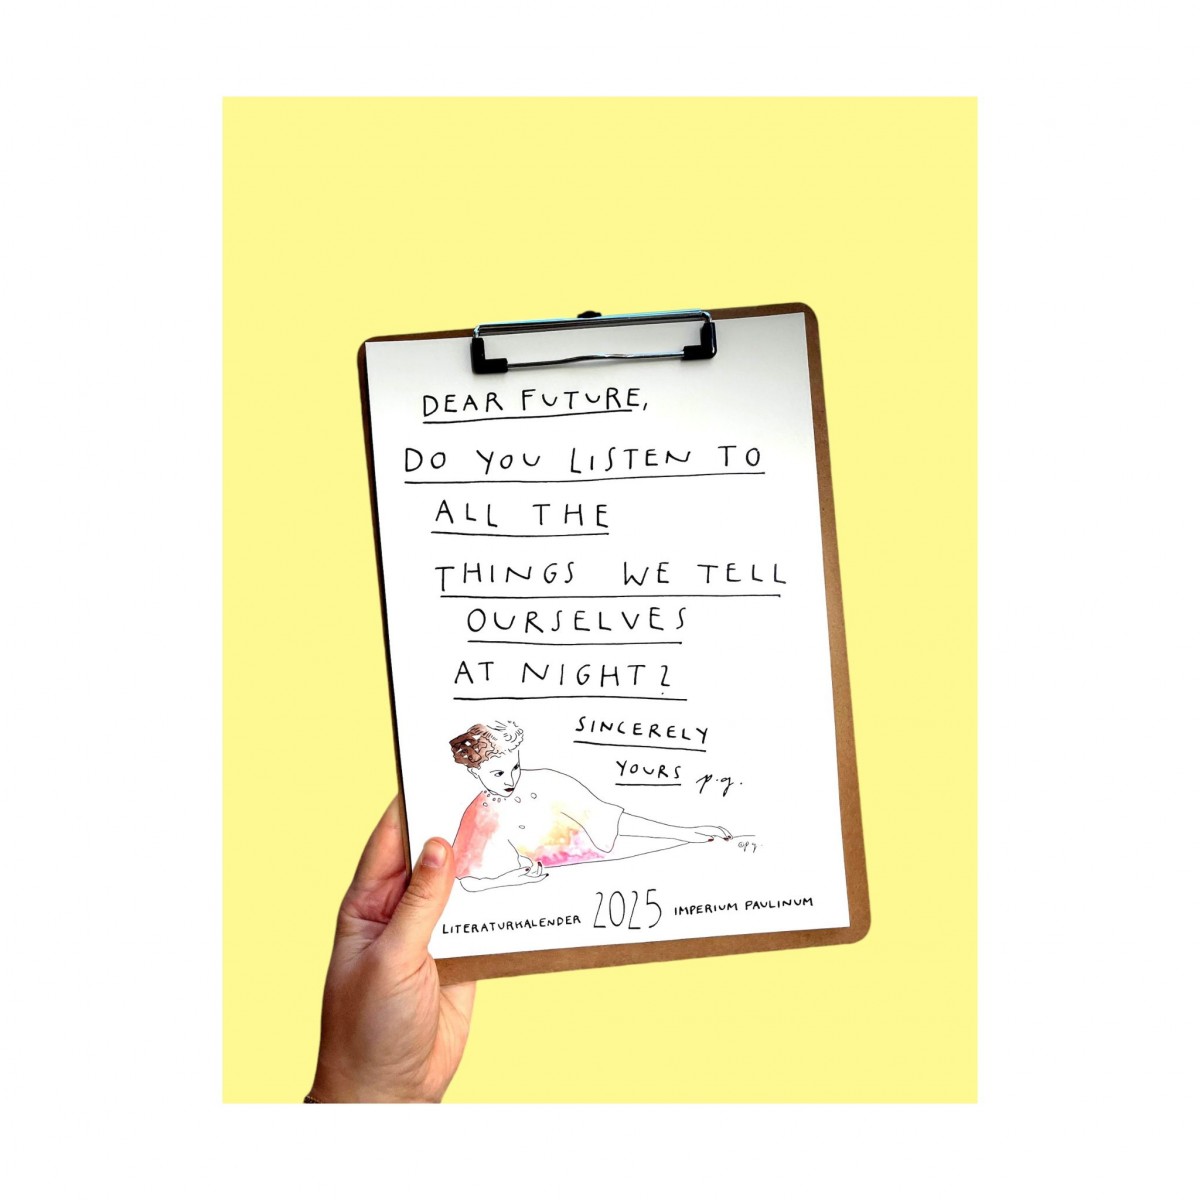 DEAR FUTURE,
DO YOU LISTEN TO
ALL THE
THINGS WE TELL
OURSELVES
AT NIGHT?
SINCERELY
YOURS p.g.
©p.g.
LITERATURKALENDER 2025 IMPERIUM PAULINUM